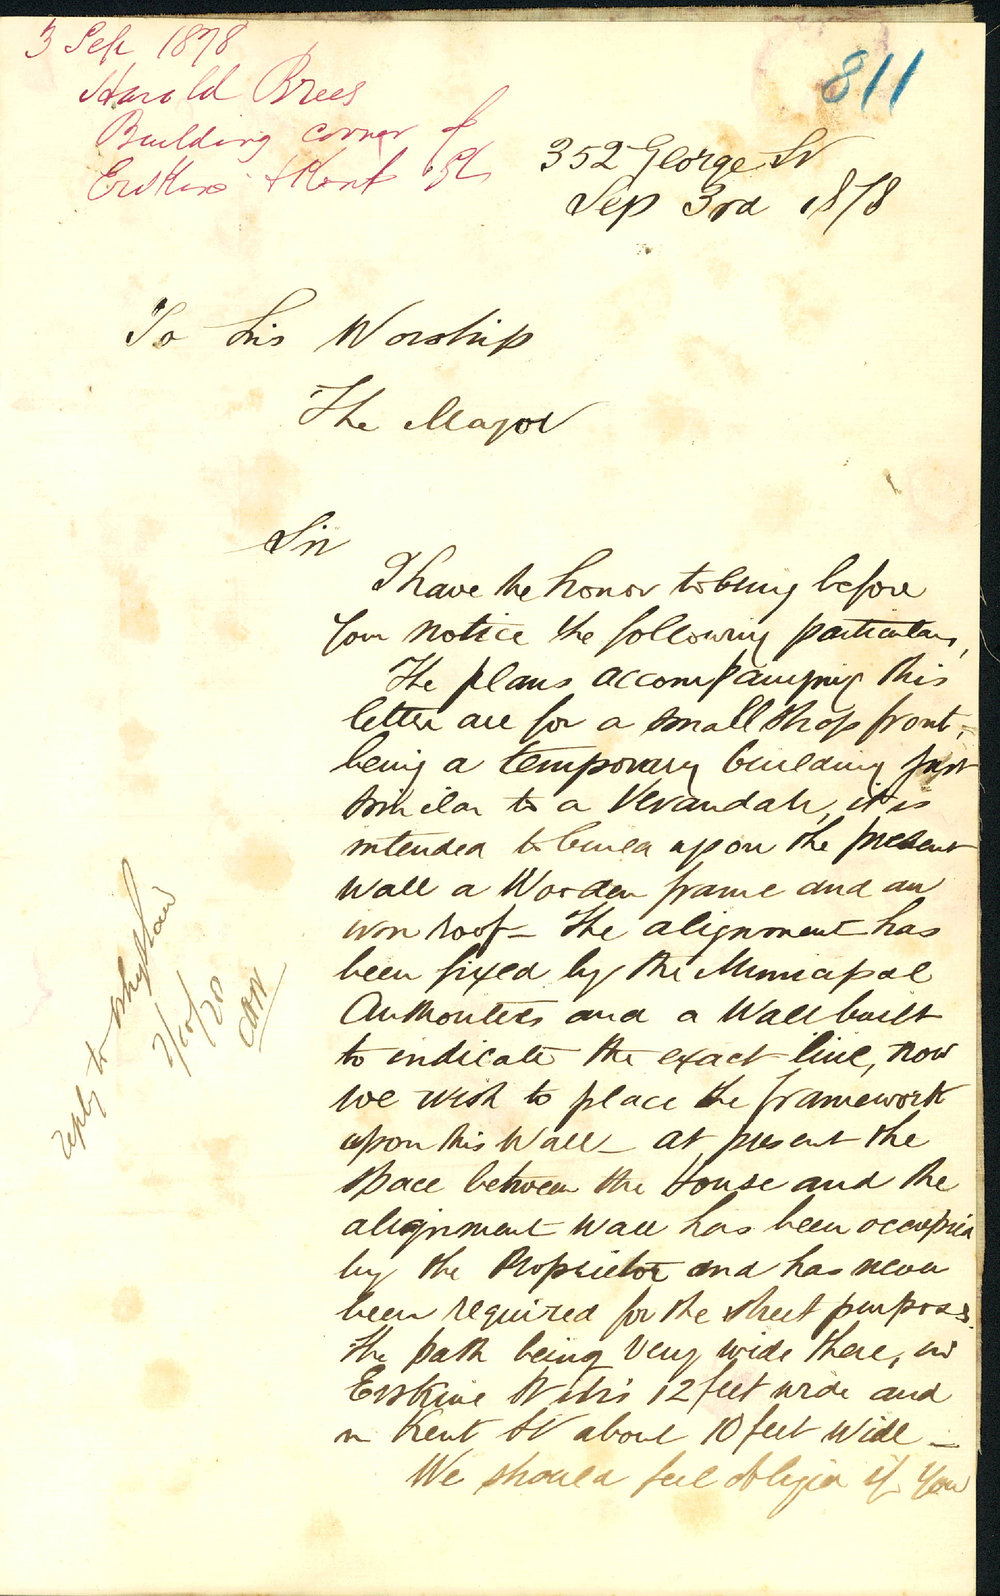 3 Sep 1878
Harold Brees
Building corner of
Erskine & Kent St
811
352 George St
Sep 3rd 1878
To his Worship
The Mayor
Sir
I have the honor to bring before
your notice the following particulars,
The plans accompanying this
letter are for a small shop front,
being a temporary building just
similar to a Verandah, it is
intended to build upon the present
wall a Wooden frame and an
iron roof - The alignment has
been fixed by the Municipal
Authorities and a Wall built
to indicate the exact line, now
we wish to place the framework
upon this Wall - at present the
space between the House and the
alignment wall has been occupied
by the Proprietor and has never
been required for the street purposes.
the path being very wide there, in
Erskine St it is 12 feet wide and
in Kent St about 10 feet wide -
We should feel obliged if you
reply to